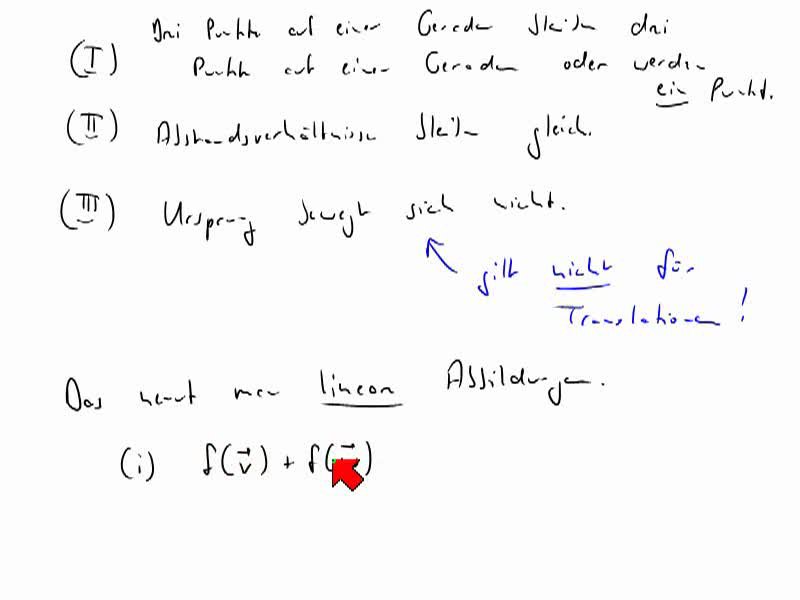 (I) Drei Punkte auf einer Geraden bleiben drei
Punkte auf einer Geraden oder werden
ein Punkt.
(II) Abstandsverhältnisse bleiben gleich.
(III) Ursprung bewegt sich nicht.
gilt nicht für
Translationen!
Das nennt man linear Abbildungen.
(i) f(v⃗) + f(